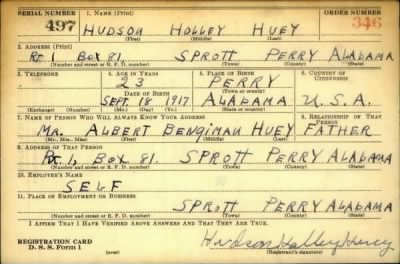 SERIAL NUMBER 1. NAME (Print) ORDER NUMBER
497 HUDSON HOLLEY HUEY 346
(First) (Middle) (Last)
2. ADDRESS (Print)
Rt 1 Box 81 SPROTT PERRY ALABAMA
(Number and street or R. F. D. number) (Town) (County) (State)
3. TELEPHONE 4. AGE IN YEARS 5. PLACE OF BIRTH 6. COUNTRY OF CITIZENSHIP
23 PERRY
DATE OF BIRTH (Town or county)
SEPT. 18 1917 ALABAMA U.S.A.
(Exchange) (Number) (Mo.) (Day) (Yr.) (State or country)
7. NAME OF PERSON WHO WILL ALWAYS KNOW YOUR ADDRESS 8. RELATIONSHIP OF THAT PERSON
MR. ALBERT BENGIMAN HUEY FATHER
(Mr., Mrs., Miss) (First) (Middle) (Last)
9. ADDRESS OF THAT PERSON
Rt. 1, BOX 81. SPROTT PERRY ALABAMA
(Number and street or R. F. D. number) (Town) (County) (State)
10. EMPLOYER'S NAME
SELF
11. PLACE OF EMPLOYMENT OR BUSINESS
SPROTT PERRY ALABAMA
(Number and street or R. F. D. number) (Town) (County) (State)
I AFFIRM THAT I HAVE VERIFIED ABOVE ANSWERS AND THAT THEY ARE TRUE.
REGISTRATION CARD
D. S. S. Form 1 (over) Hudson Holley Huey
(Registrant's signature)